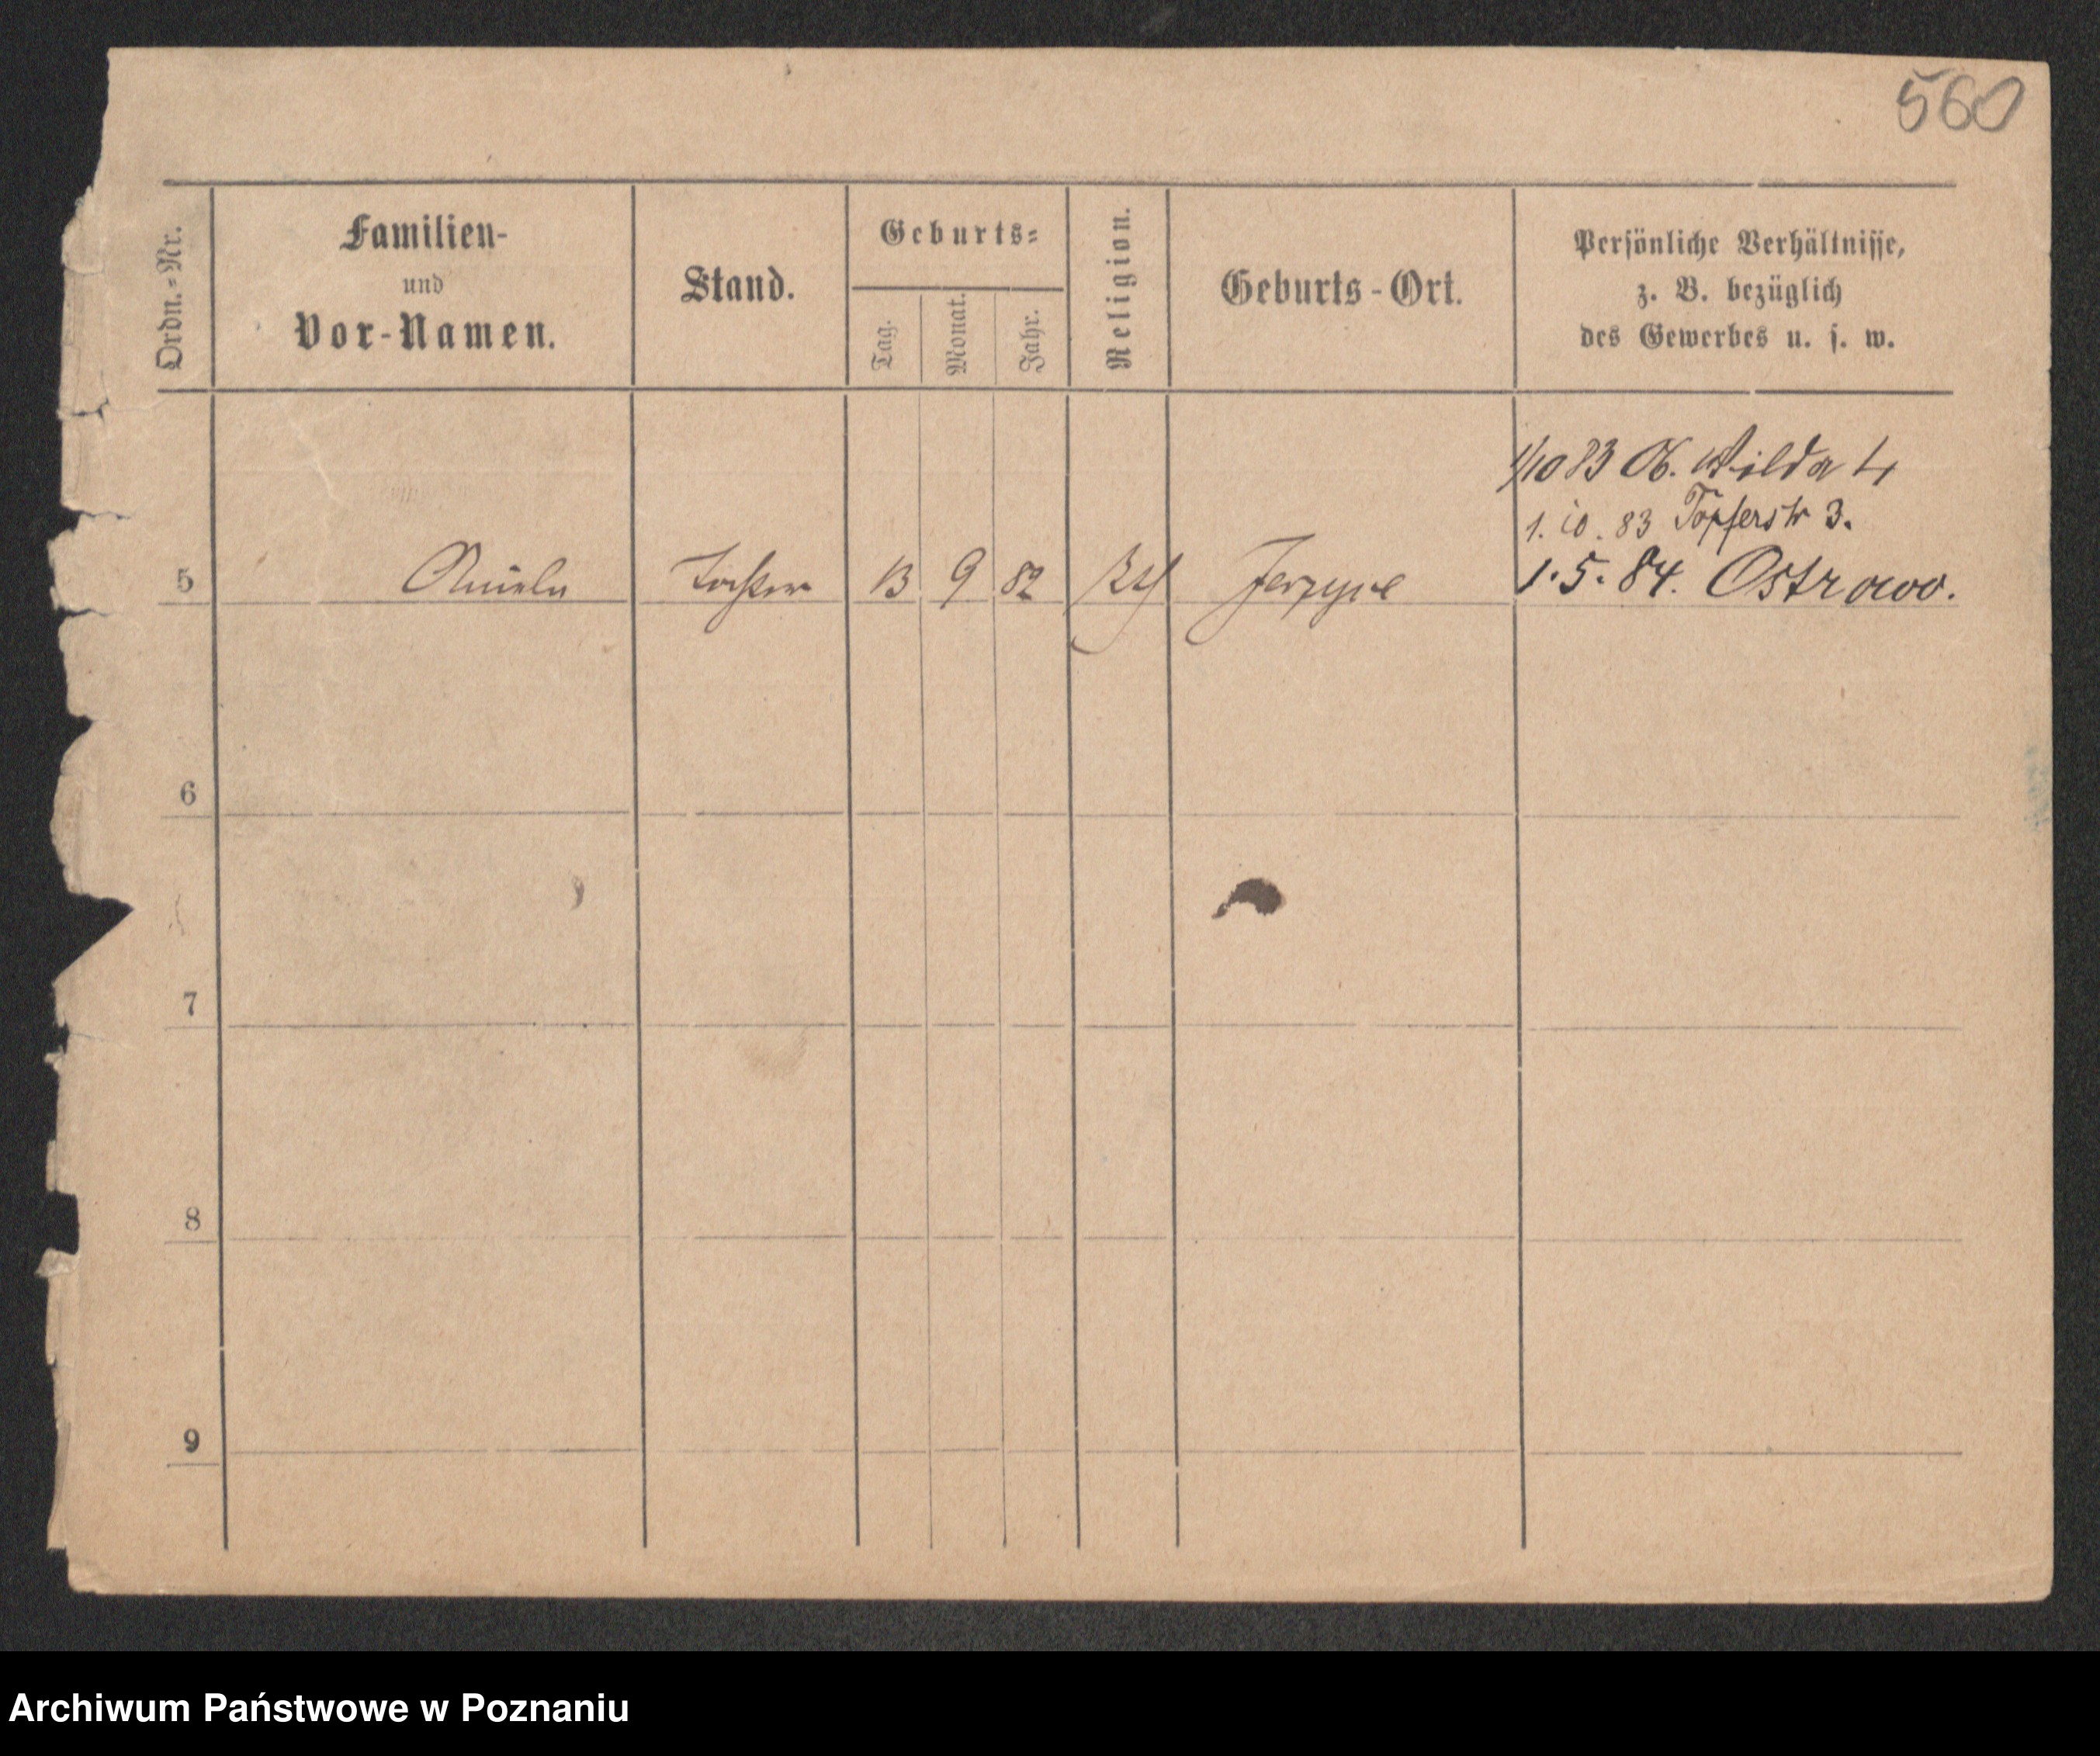 560
Ordn.-Nr.
Familien-
und
Vor-Namen.
Stand.
Geburts-
Tag.
Monat.
Jahr.
Religion.
Geburts-Ort.
Persönliche Verhältnisse,
z. B. bezüglich
des Gewerbes u. s. w.
1/10 83 Ob. Wilda 4
1. 10. 83 Töpferstr 3.
5 Tochter 13 9 82 Jerzyce 1. 5. 84. Ostrowo.
6
7
8
9
Archiwum Państwowe w Poznaniu